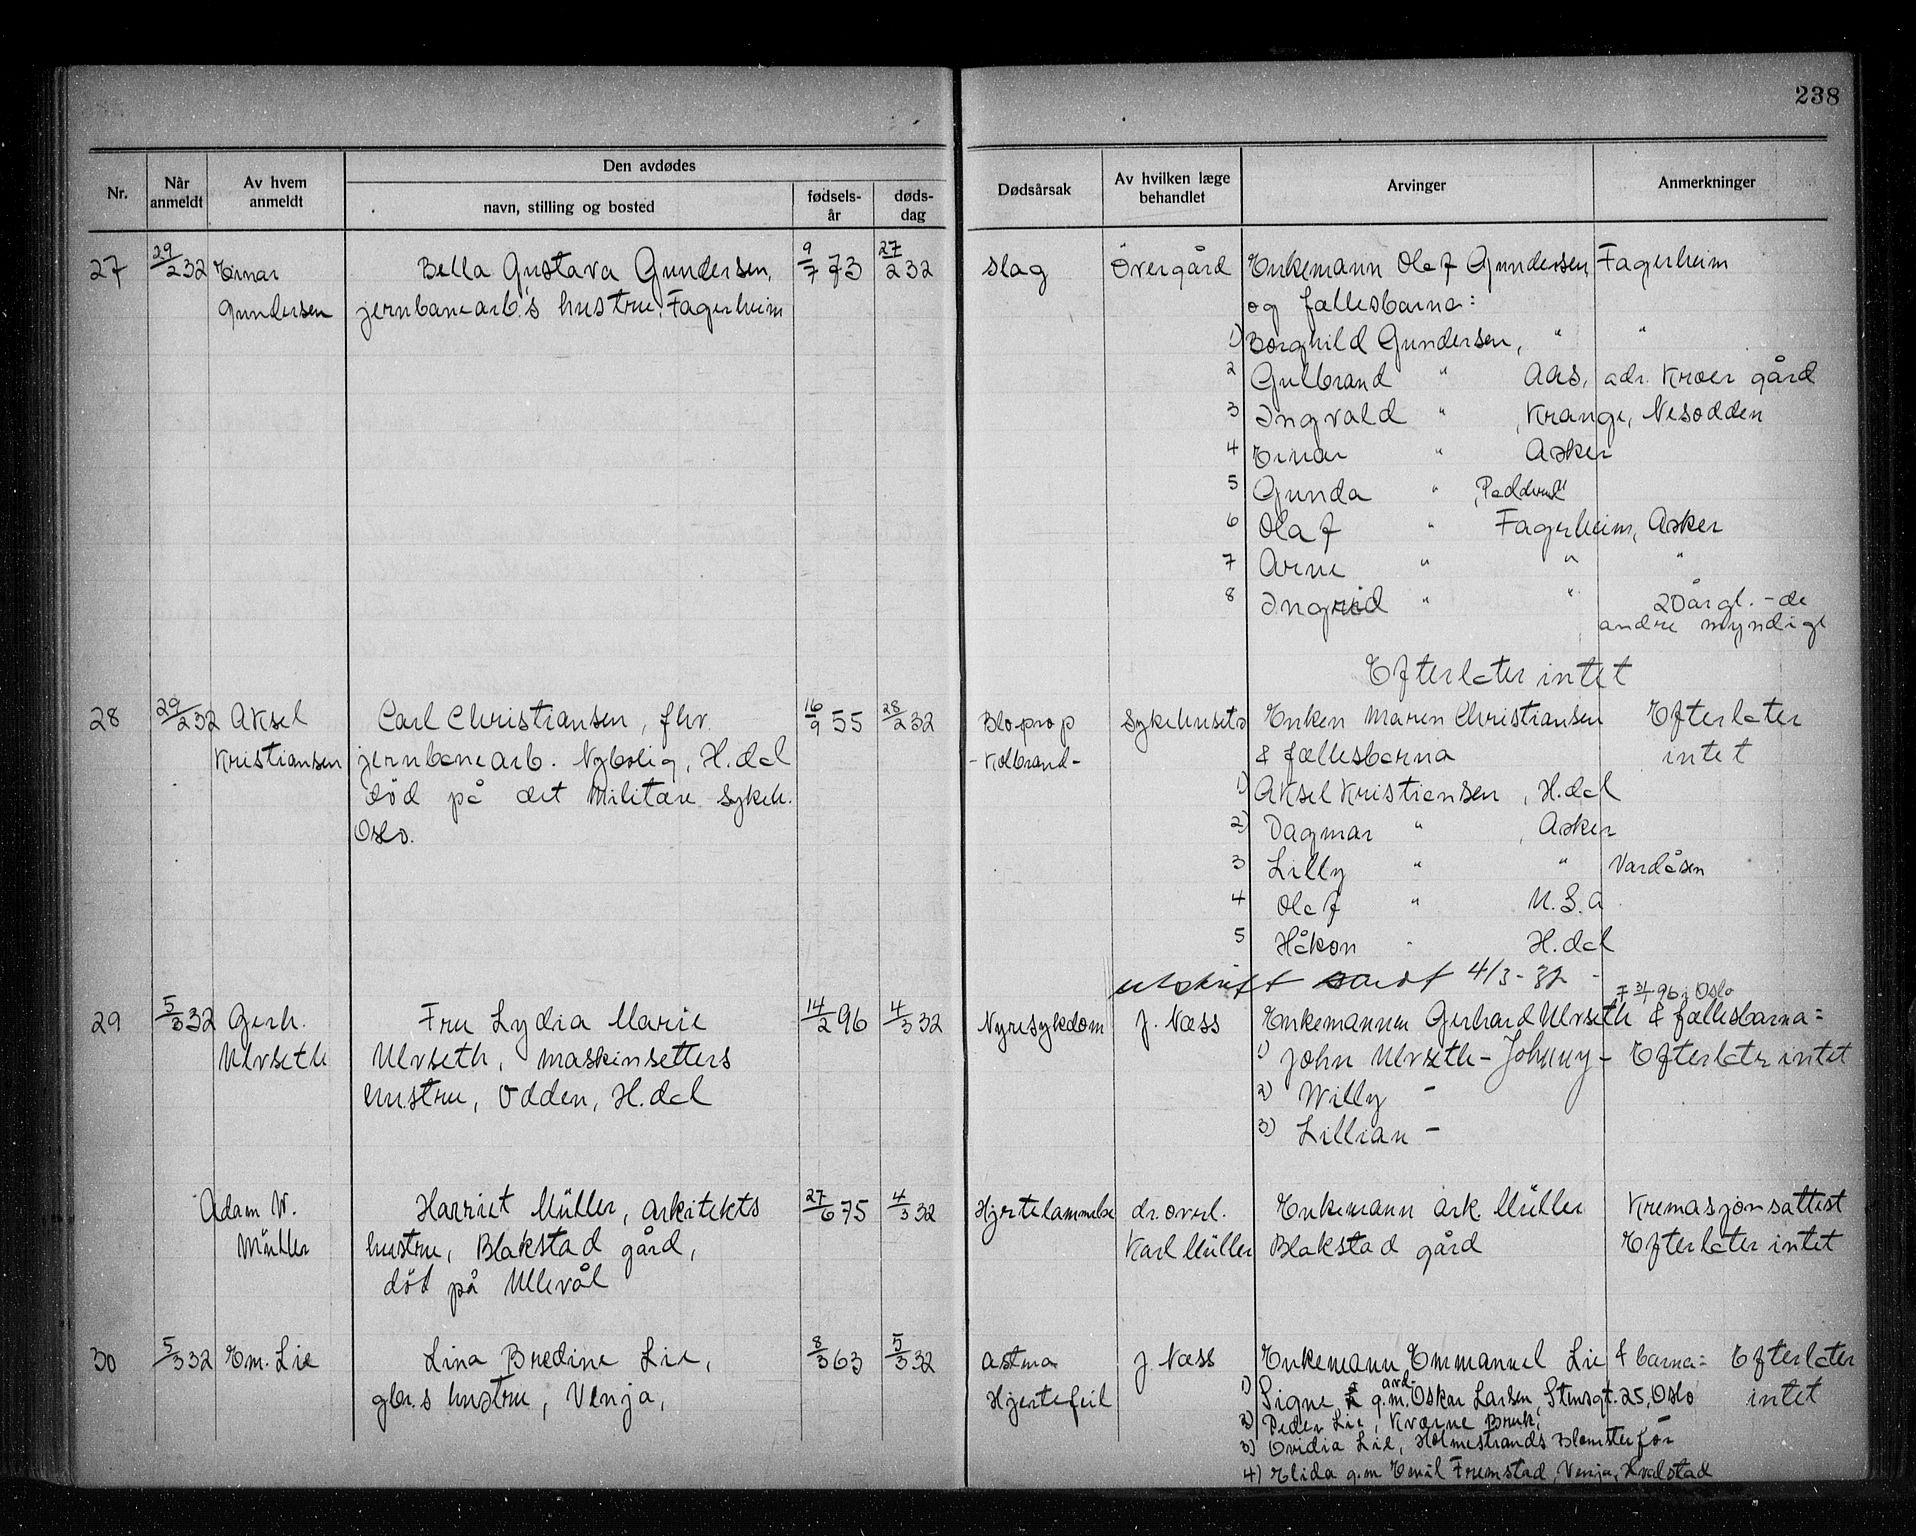 238
Den avdødes
Nr.
Når anmeldt
Av hvem anmeldt
navn, stilling og bosted
fødsels-år
døds-dag
Dødsårsak
Av hvilken læge behandlet
Arvinger
Anmerkninger
27 29/2 32 Einar Bella Gustava Gundersen, 9/7 73 27/2 32 slag Övergård Enkemann Olaf Gundersen Fagerheim
Gundersen jernbanearb.s hustru, Fagerheim og fællesbarna:
1) Borghild Gundersen, " "
2 Gulbrand " Aas, adr. Kroer gård
3 Ingvald " , Krange, Nesodden
4 Einar " Asker
5 Gunda "
6 Olaf " Fagerheim, Asker
7 Arne " " "
8 Ingrid " " 20 årgl. - de
andre myndige
Efterlater intet
28 29/2 32 Aksel Carl Christiansen, fhv. 16/9 55 28/2 32 Blo prop Sykehuset Enken Maren Christiansen Efterlater
Kristiansen jernbanearb. Nybolig, H.dal - Kolbrand - & fællesbarna intet
død på det militære sykeh. 1) Aksel Kristiansen, H.dal
Oslo. 2) Dagmar " , Asker
3 Lilly " " Vardåsen
4 Olaf " U.S.A.
5 Håkon " H.dal
utskrift sendt 4/3-32 -
29 5/3 32 Gerh. Fru Lydia Marie 14/2 96 4/3 32 Nyresykdom J. Næss Enkemannen Gerhard Ulvseth & fællesbarna:
96 i Oslo
Ulvseth Ulvseth, maskinsetters 1) John Ulvseth - Johnny - Efterlater intet
hustru, Odden, H.dal 2) Willy -
3) Lillian -
Adam W. Harriet Müller, arkitekts 27/6 75 4/3 32 Hjertelammelse dr. overl. Enkemann ark. Müller Kremasjonsattest
Müller hustru, Blakstad gård, Karl Müller Blakstad gård Efterlater intet
död på Ullevål
30 5/3 32 Em. Lie Lina Bredine Lie, 8/3 63 5/3 32 astma J. Næss Enkemann Emmanuel Lie & barna: Efterlater
gbr.s hustru, Venja, Hjertefeil 1) Signe g.m. Oskar Larsen, Stensgt. 25, Oslo intet
2) Peder Lie, Kværne Bruk,
3) Ovidia Lie, Holmestrands Blomsterfor
4) Elida g.m. Emil Fremstad, Venja, Hvalstad